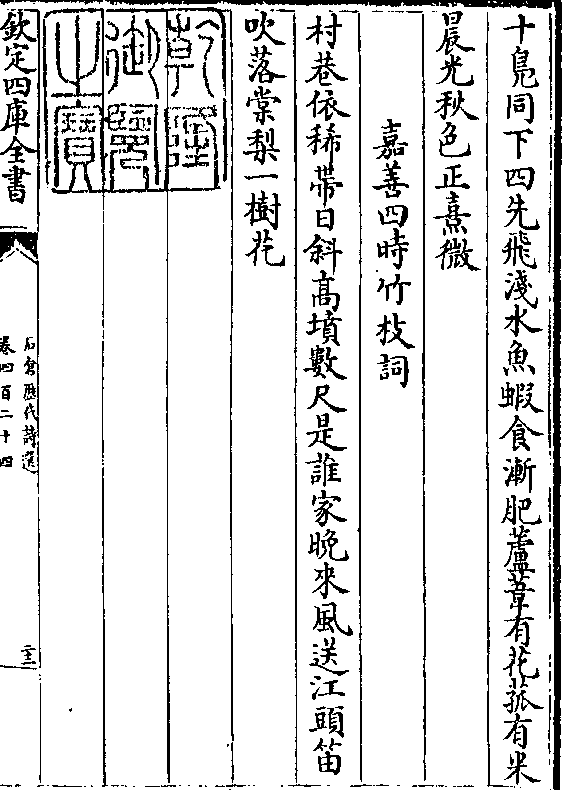 十鳬同下四先飛淺水魚蝦食漸肥蘆葦有花菰有米
晨光秋色正熹微
嘉善四時竹枝詞
村巷依稀帶日斜高墳數尺是誰家晩來風送江頭笛
吹落棠梨一樹花
乾隆
御覽
之寶
欽定四庫全書
石倉歷代詩選
卷四百二十四